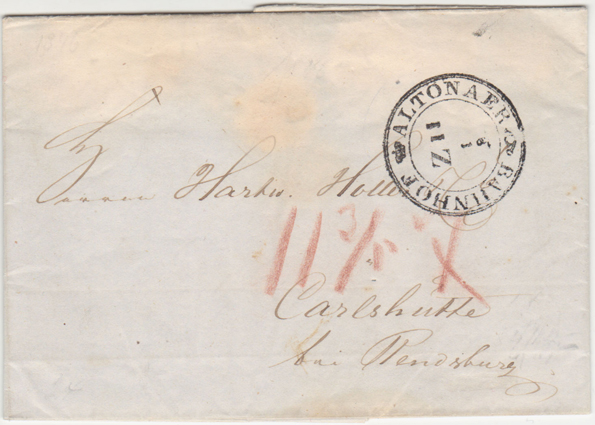 ALTONAER BAHNHOF
II Z
Herren Hartw. Holler
11 3/5
Carlshütte
bei Rendsburg